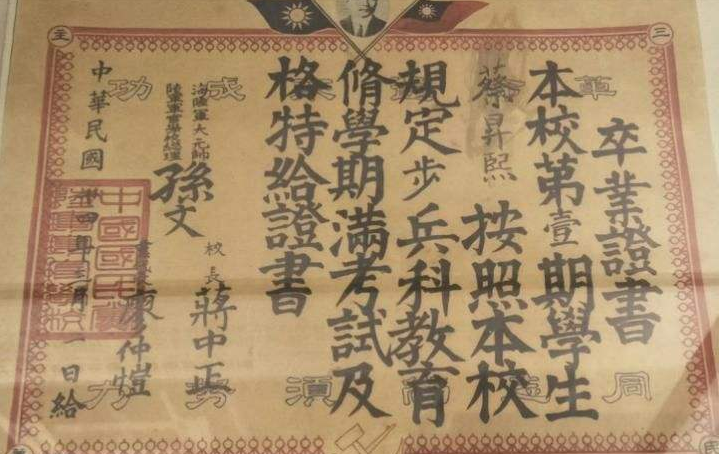 三
主
革
成功
卒業證書
本校第壹期學生
蔡昇熙按照本校
規定步兵科教育
脩學期滿考試及
格特給證書
海陸軍大元帥
陸軍軍官學校總理
孫文
校長蔣中正
廖仲愷
中華民國十四年三月一日給
中國國民黨
同
須努力
民